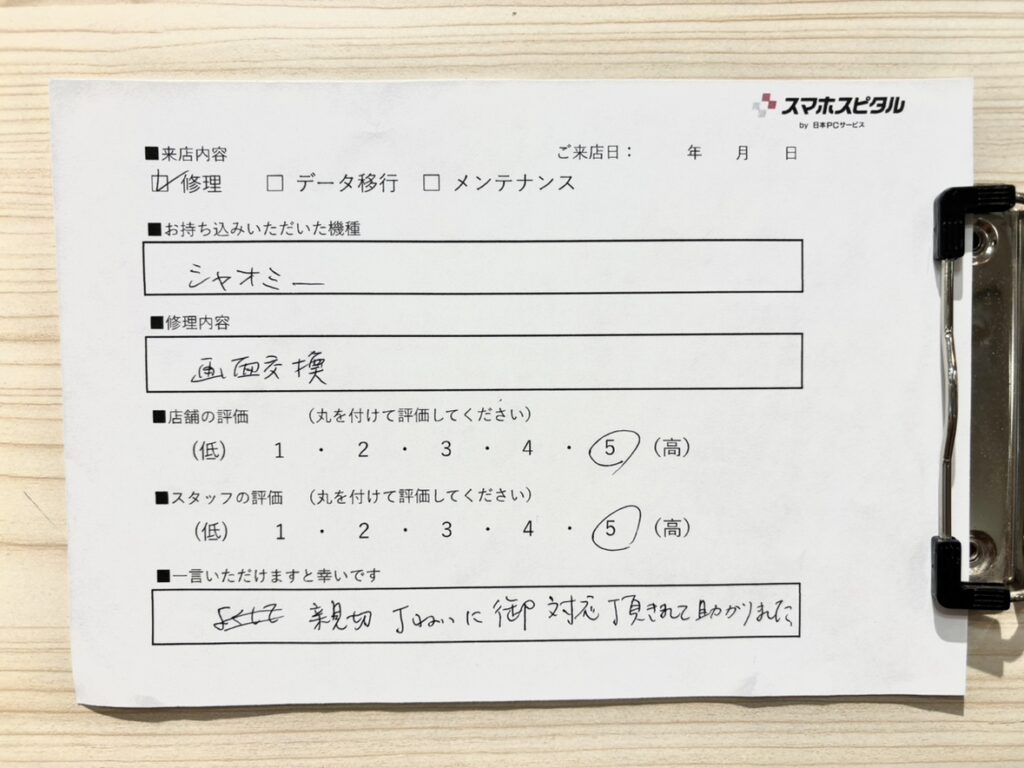 スマホスピタル
by 日本PCサービス
■来店内容 ご来店日： 年 月 日
☑修理 □ データ移行 □ メンテナンス
■お持ち込みいただいた機種
シャオミー
■修理内容
画面交換
■店舗の評価 （丸を付けて評価してください）
（低） 1 ・ 2 ・ 3 ・ 4 ・ 5 （高）
■スタッフの評価 （丸を付けて評価してください）
（低） 1 ・ 2 ・ 3 ・ 4 ・ 5 （高）
■一言いただけますと幸いです
親切 丁ねいに 御 対応 頂きまして助かりました